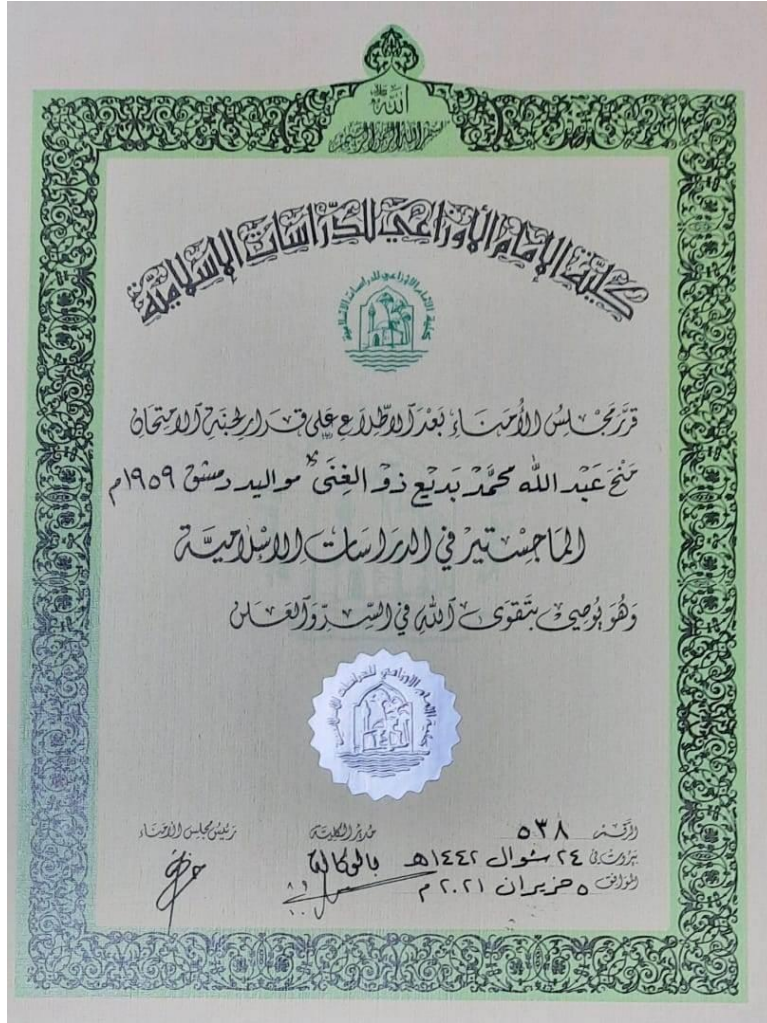 الله
بسم الله الرحمن الرحيم
كلية الإمام الأوزاعي للدراسات الإسلامية
كلية الإمام الأوزاعي للدراسات الإسلامية
قرر مجلس الأمناء بعد الاطلاع على قرار لجنة الامتحان
منح عبد الله محمد بديع ذو الغنى مواليد دمشق ١٩٥٩م
الماجستير في الدراسات الإسلامية
وهو يوصي بتقوى الله في السر والعلن
كلية الإمام الأوزاعي للدراسات الإسلامية
الرقم ٥٣٨ مدير الكلية رئيس مجلس الأمناء
بيروت في ٢٤ شوال ١٤٤٢هـ بالوكالة
الموافق ٥ حزيران ٢٠٢١ م